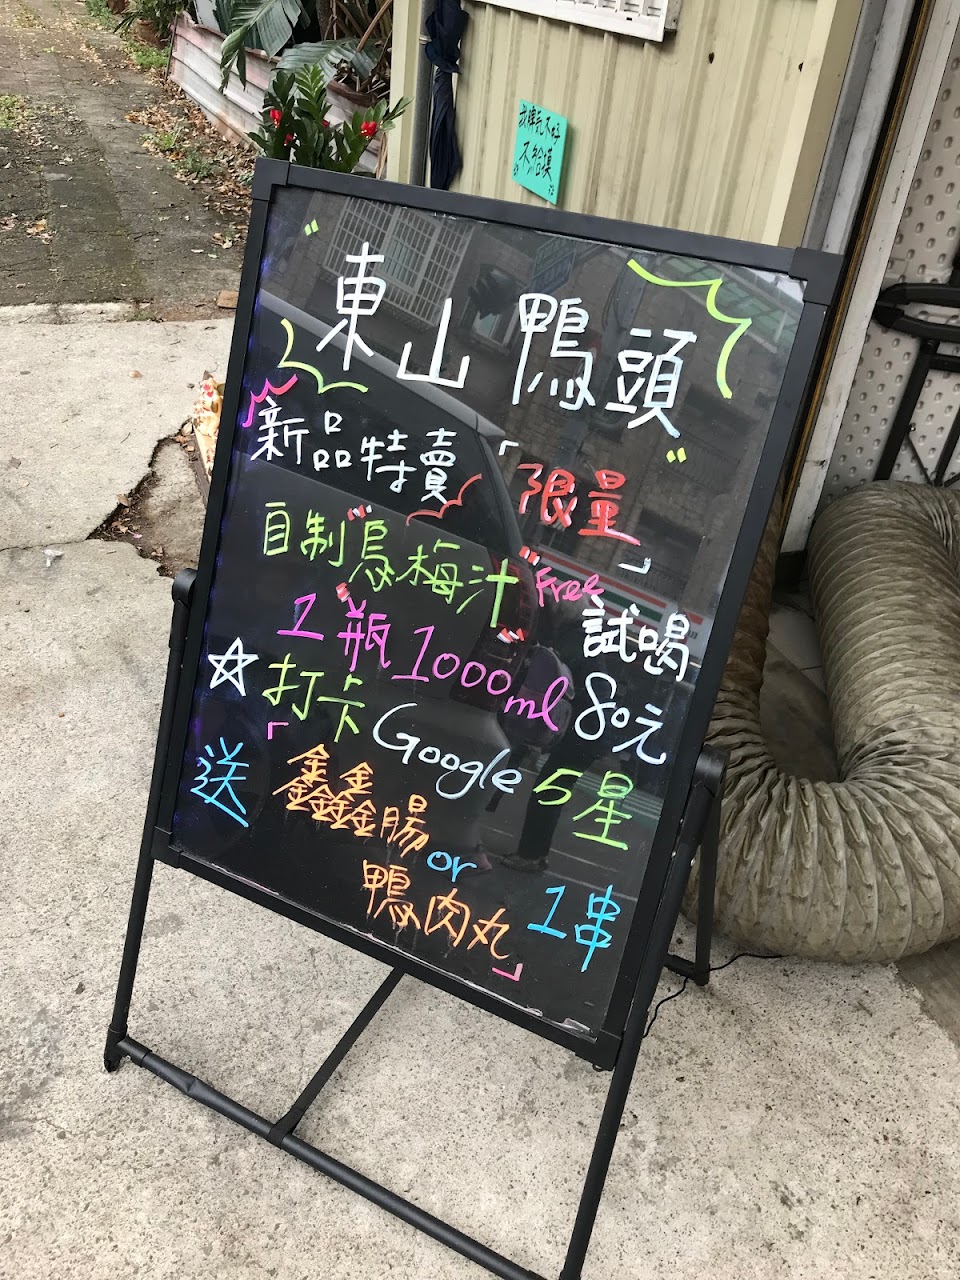 我脾氣不好
不給摸
"東山鴨頭"
新品特賣「限量」
自制烏梅汁 Free 試喝
1瓶1000ml 80元
☆打卡Google 5星
送「鑫鑫腸 or
鴨肉丸」1串